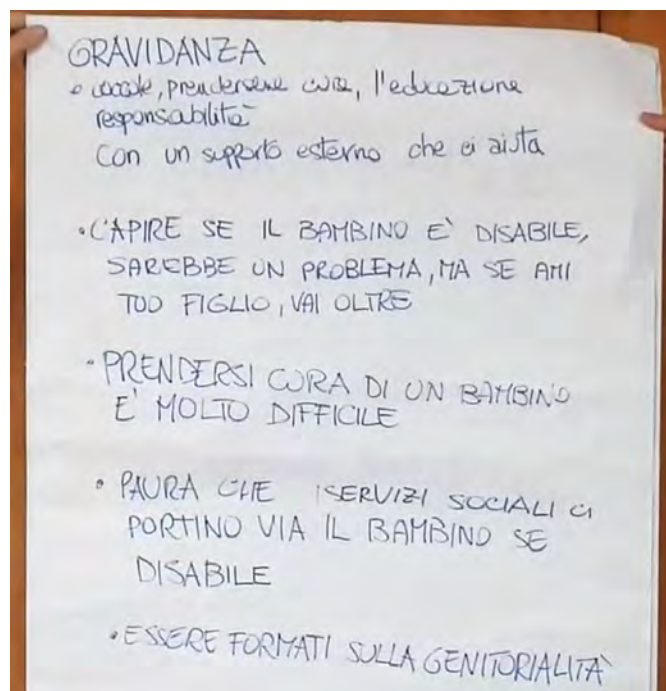 GRAVIDANZA
• prendersene cura, l'educazione
responsabilità
Con un supporto esterno che ci aiuta
• CAPIRE SE IL BAMBINO E' DISABILE,
SAREBBE UN PROBLEMA, MA SE AMI
TUO FIGLIO, VAI OLTRE
• PRENDERSI CURA DI UN BAMBINO
E' MOLTO DIFFICILE
• PAURA CHE I SERVIZI SOCIALI CI
PORTINO VIA IL BAMBINO SE
DISABILE
• ESSERE FORMATI SULLA GENITORIALITA'